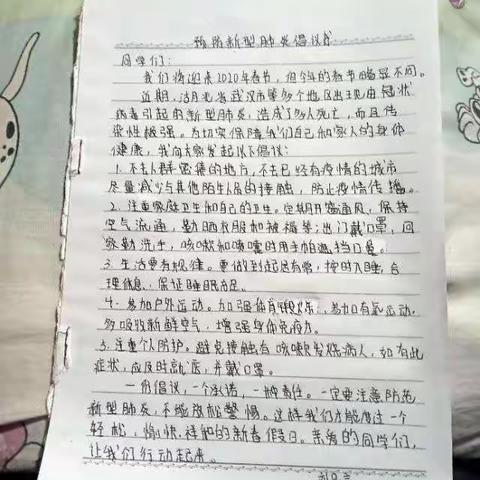 预防新型肺炎倡议书
同学们：
我们将迎来2020年春节，但今年的春节略显不同。
近期，湖北省武汉市等多个地区出现由冠状
病毒引起的新型肺炎，造成了多人死亡，而且传
染性极强。为切实保障我们自己和家人的身体
健康，我向大家发起以下倡议：
1.不去人群密集的地方，不去已经有疫情的城市
尽量减少与其他陌生人员的接触，防止疫情传播。
2.注重家庭卫生和自己的卫生。定期开窗通风，保持
空气流通，勤晒衣服和被褥等；出门戴口罩，回
家勤洗手，咳嗽和喷嚏时用手帕遮挡口鼻。
3.生活要有规律。要做到起居有常，按时入睡，合
理休息，保证睡眠充足。
4.参加户外运动。加强体育锻炼，参加有氧运动，
多吸收新鲜空气，增强身体免疫力。
5.注重个人防护。避免接触有咳嗽发烧病人，如有此
症状，应及时就医，并戴口罩。
一份倡议，一个承诺，一种责任。一定要注意防范
新型肺炎，不能放松警惕。这样我们才能度过一个
轻松，愉快，祥和的新春假日。亲爱的同学们，
让我们行动起来。